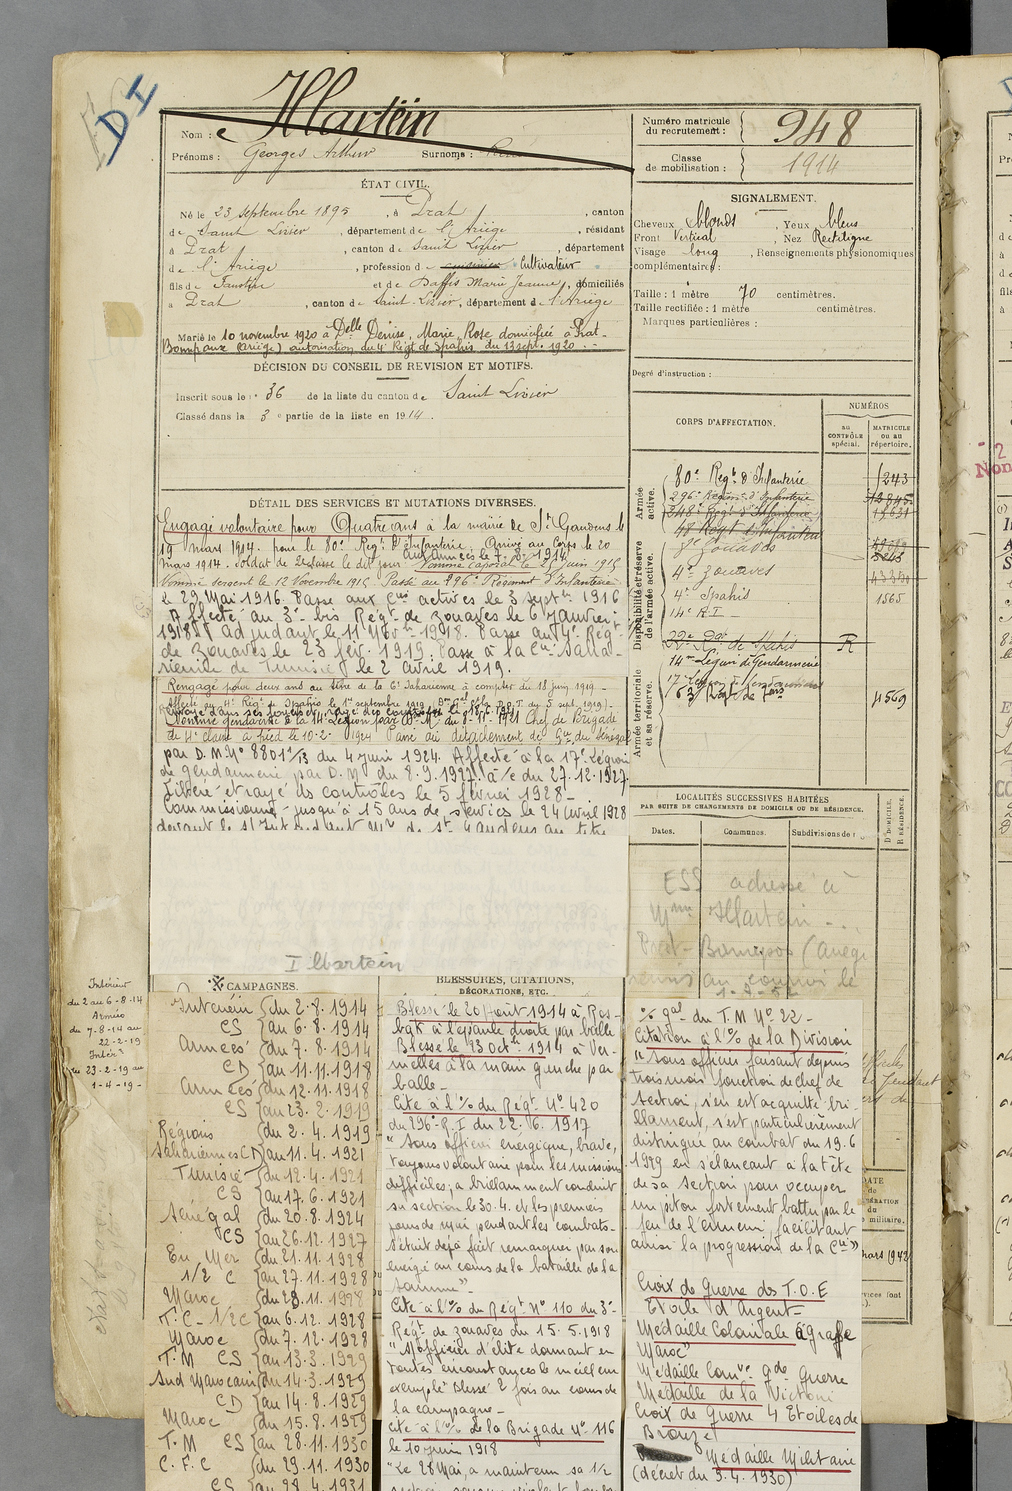 DI
Nom : Martein
Prénoms : Georges Arthur Surnoms :
Numéro matricule du recrutement : 948
Classe de mobilisation : 1914
ÉTAT CIVIL.
Né le 23 septembre 1895, à Prat, canton
de Saint Lizier, département de l'Ariège, résidant
à Prat, canton de Saint Lizier, département
de l'Ariège, profession de cultivateur
fils de Faustin et de Baffis Marie Jeanne, domiciliés
à Prat, canton de Saint-Lizier, département de l'Ariège
Marié le 10 novembre 1920 à Delle Denise, Marie, Rose domiciliée à Prat-
Bonrepaux (Ariège) autorisation du 4e Régt de Spahis du 13 sept. 1920. -
SIGNALEMENT.
Cheveux blonds, Yeux bleus
Front Vertical, Nez Rectiligne
Visage long, Renseignements physionomiques
complémentaires :
Taille : 1 mètre 70 centimètres.
Taille rectifiée : 1 mètre centimètres.
Marques particulières :
Degré d'instruction :
DÉCISION DU CONSEIL DE REVISION ET MOTIFS.
Inscrit sous le n° 36 de la liste du canton de Saint Lizier
Classé dans la 3e partie de la liste en 1914.
CORPS D'AFFECTATION.
NUMÉROS
AU CONTRÔLE spécial.
MATRICULE OU AU répertoire.
Armée active.
80e Régt d'Infanterie 1243
296e Régim. d'Infanterie
348e Régt d'Infanterie
Disponibilité et réserve de l'armée active.
8e Zouaves
4e Zouaves
4e Spahis 1565
14e R.I -
22e Rgt de Spahis R
14me Légion de Gendarmerie
17e Légion de Gendarmerie
Armée territoriale et sa réserve.
4569
DÉTAIL DES SERVICES ET MUTATIONS DIVERSES.
Engagé volontaire pour Quatre ans à la mairie de St Gaudens le
19 mars 1914. pour le 80e Regt d'Infanterie. Arrivé au Corps le 20
mars 1914. Soldat de 2e classe le dit jour. aux Armées le 7.8.1914 Nommé caporal le 25 juin 1915
Nommé sergent le 12 Novembre 1915. Passé au 296e Régiment d'Infanterie
le 29 Mai 1916. Passé aux Cies actives le 3 septbre 1916
Affecté au 3e bis Régt de zouaves le 6 Janvier
1918. Adjudant le 11 Novbre 1918. Passé au 4e Régt
de zouaves le 23 fév. 1919. Passé à la Cie Saha-
rienne de Tunisie le 2 avril 1919.
Rengagé pour deux ans au titre de la Cie Saharienne à compter du 18 juin 1919 -
Affecté au 4e Régt de Spahis le 1er septembre 1919
Nommé gendarme à la 14e Légion par D. M. du 8-11-1921 Chef de Brigade
de 4e classe à pied le 10-2- 1924 Passé au détachement de Gie du Sénégal
par D.M. N° 8801 1/13 du 4 juin 1924. Affecté à la 17e Légion
de gendarmerie par D.M du 8.9.1927. à/c du 27.12.1927.
Libéré et rayé des contrôles le 5 février 1928 -
Commissionné jusqu'à 15 ans de services le 24 avril 1928
devant le s/Intendant Mre de St Gaudens au titre
I Martein
LOCALITÉS SUCCESSIVES HABITÉES
PAR SUITE DE CHANGEMENTS DE DOMICILE OU DE RÉSIDENCE.
Dates. Communes. Subdivisions de r
D. DOMICILE R. RÉSIDENCE.
ESS adressé à
Mme Martein -..
Prat-Bonrepos (Ariège
remis au convoi le
CAMPAGNES.
Intérieur
du 2 au 6-8-14
Armée
du 7-8-14 au
22-2-19
Intér.
du 23-2-19 au
1-4-19-
Intérieur du 2.8.1914
CS au 6.8.1914
Armées du 7.8.1914
CD au 11.11.1918
Armées du 12.11.1918
CS au 23.2.1919
Régions du 2.4.1919
Sahariennes CD au 11.4.1921
Tunisie du 12.4.1921
CS au 17.6.1921
Sénégal du 20.8.1924
CS au 26.12.1927
En Mer du 21.11.1928
1/2 C au 27.11.1928
Maroc du 28.11.1928
T.C. 1/2 C au 6.12.1928
Maroc du 7.12.1928
T.M CS au 13.3.1929
Sud Marocain du 14.3.1929
CD au 14.8.1929
Maroc du 15.8.1929
T.M CS au 28.11.1930
C.F.C du 29.11.1930
CS au 28.4.1931
BLESSURES, CITATIONS,
DÉCORATIONS, ETC.
Blessé le 20 août 1914 à Ros-
bat à l'épaule droite par balle
Blessé le 23 Octbre 1914 à Ver-
melles à la main gauche par
balle -
Cité à l'% du Régt N° 420
du 296e R.I du 22.6.1917
"Sous officier énergique, brave,
toujours volontaire pour les missions
difficiles; a brillamment conduit
sa section le 30.4. et les premiers
jours de mai pendant les combats.
s'était déjà fait remarquer par son
énergie au cours de la bataille de la
Somme"
Cité à l'% du Régt N° 110 du 3e
Régt de zouaves du 15.5.1918
"S/officier d'élite donnant en
toutes circonstances le meilleur
exemple blessé 2 fois au cours de
la campagne -
Cité à l'% de la Brigade N° 116
le 10 juin 1918
"Le 28 Mai, a maintenu sa 1/2
% gal du T.M N° 22 -
Citation à l'% de la Division
"Sous officier faisant depuis
trois mois fonction de chef de
section, s'en est acquitté bri-
llamment, s'est particulièrement
distingué au combat du 19.6
1929 en s'élançant à la tête
de sa section pour occuper
un piton fortement battu par le
feu de l'ennemi, facilitant
ainsi la progression de la Cie"
Croix de Guerre des T.O.E
Etoile d'Argent -
Médaille Coloniale agrafe
Maroc"
Médaille Comve gde Guerre
Médaille de la Victoire
Croix de Guerre 4 Etoiles de
Bronze
Médaille Militaire
(décret du 3.4.1930)
mars 1942